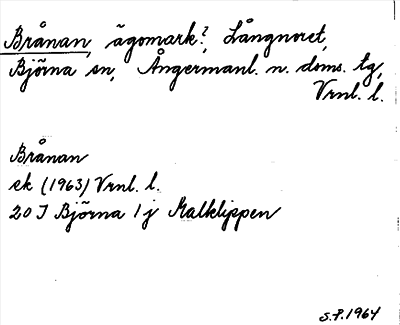 Brånan, ägomark?, Långnoret,
Björna sn, Ångermanl. n. doms. tg,
Vrnl. l.
Brånan
ek (1963) Vrnl. l.
20 I Björna 1 j Malklippen
S.P. 1964